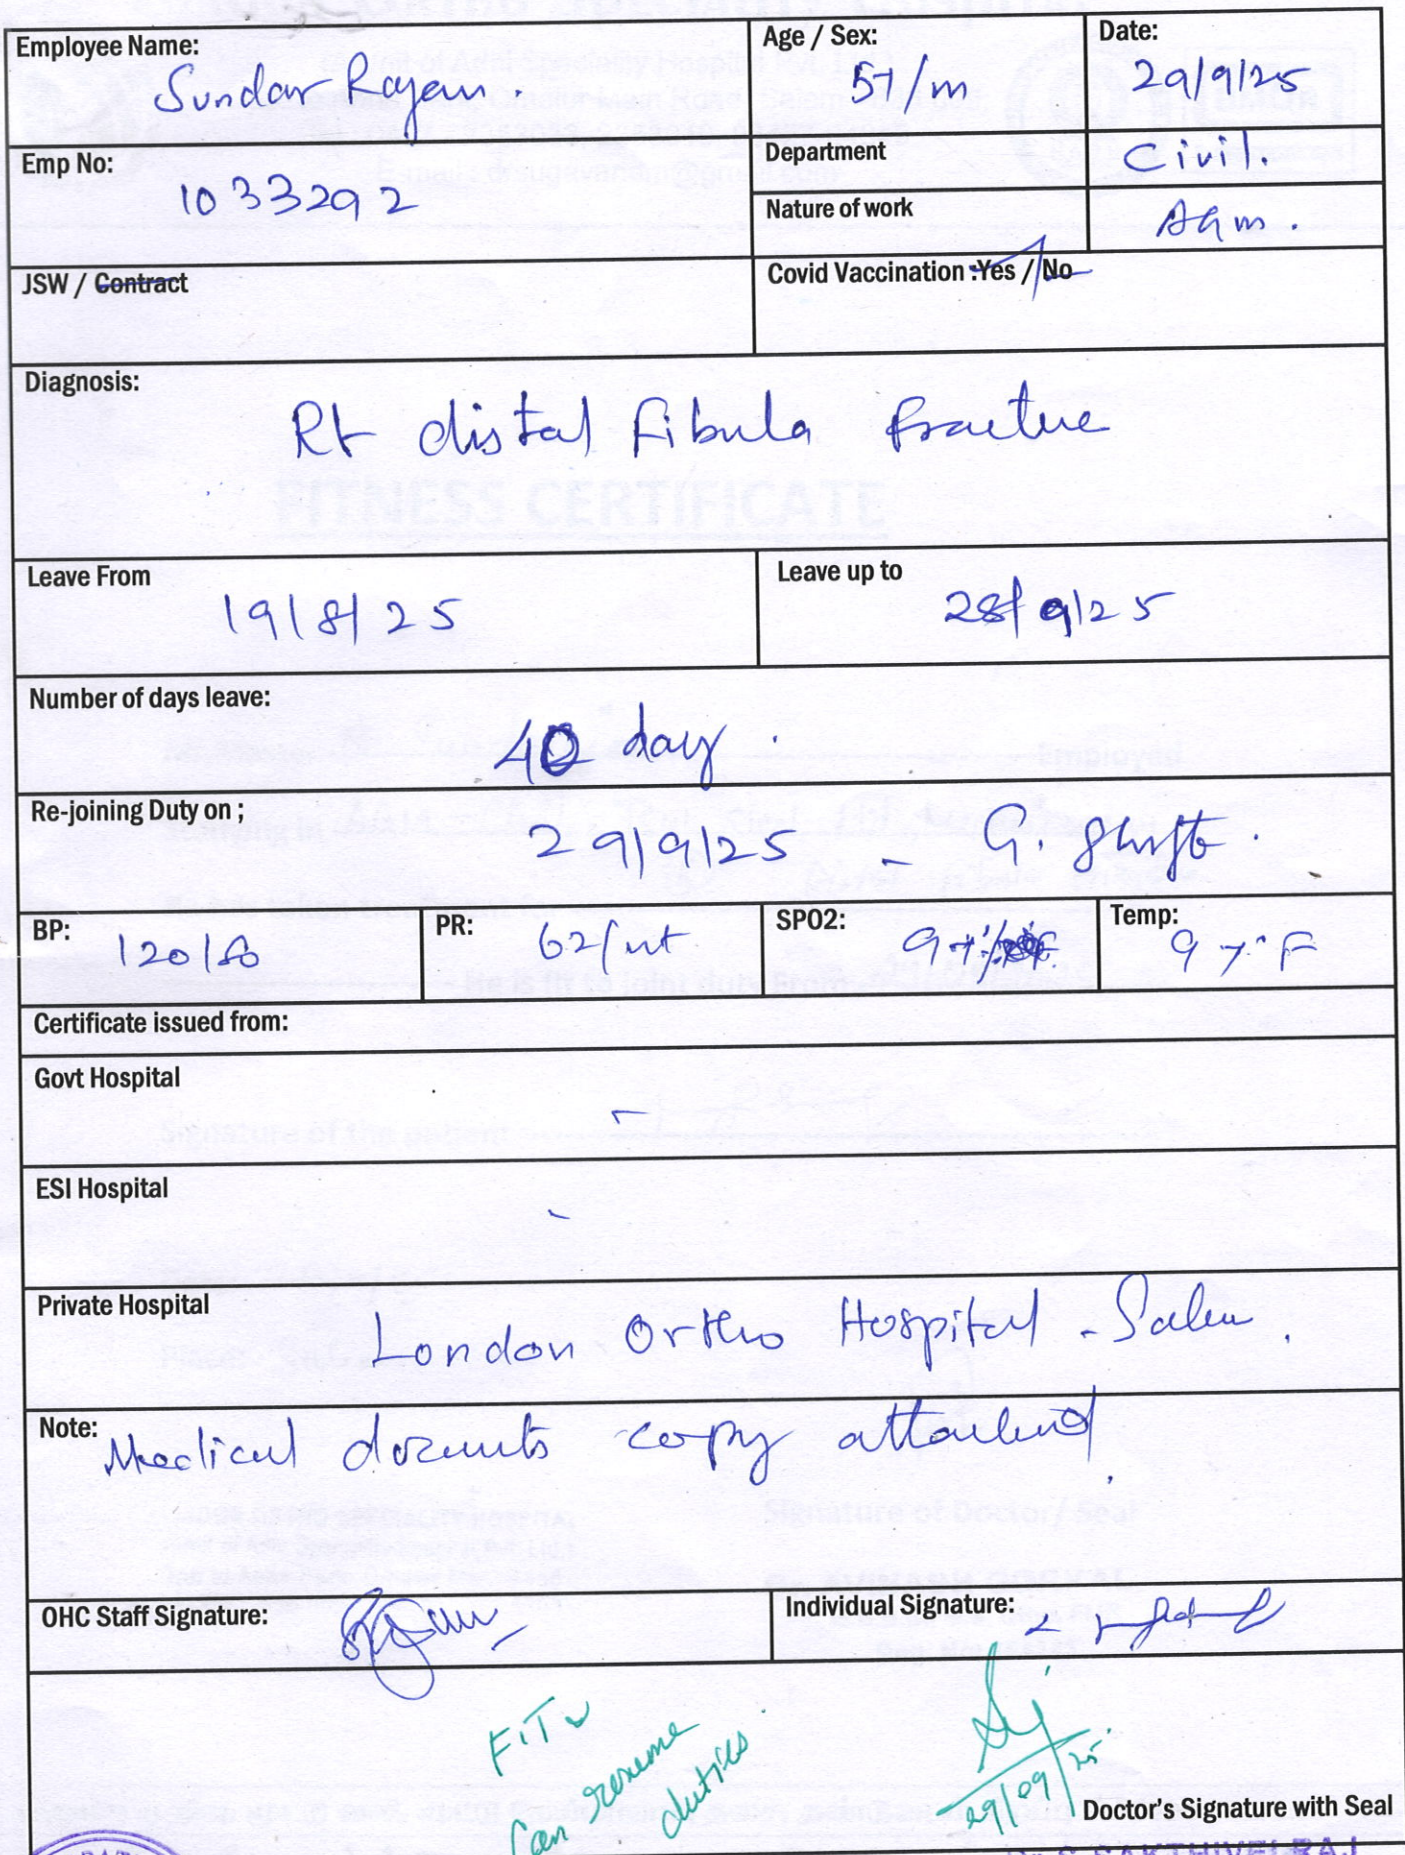 Employee Name: Sundar Rajan.
Age / Sex: 57/m
Date: 29/9/25
Emp No: 1033292
Department Civil.
Nature of work AGm.
JSW / Contract
Covid Vaccination :Yes / No
Diagnosis:
Rt distal Fibula fracture
Leave From 19/8/25
Leave up to 28/9/25
Number of days leave: 40 day.
Re-joining Duty on ; 29/9/25 - G. Shift.
BP: 120/80 PR: 62/mt SPO2: 97% Temp: 97°F
Certificate issued from:
Govt Hospital -
ESI Hospital -
Private Hospital London Ortho Hospital - Salem.
Note: Medical documents copy attached.
OHC Staff Signature:
Individual Signature:
FIT
Can resume
duties.
29/09/25
Doctor's Signature with Seal
Dr. S. SAKTHIVELRAJ
FITNESS CERTIFICATE